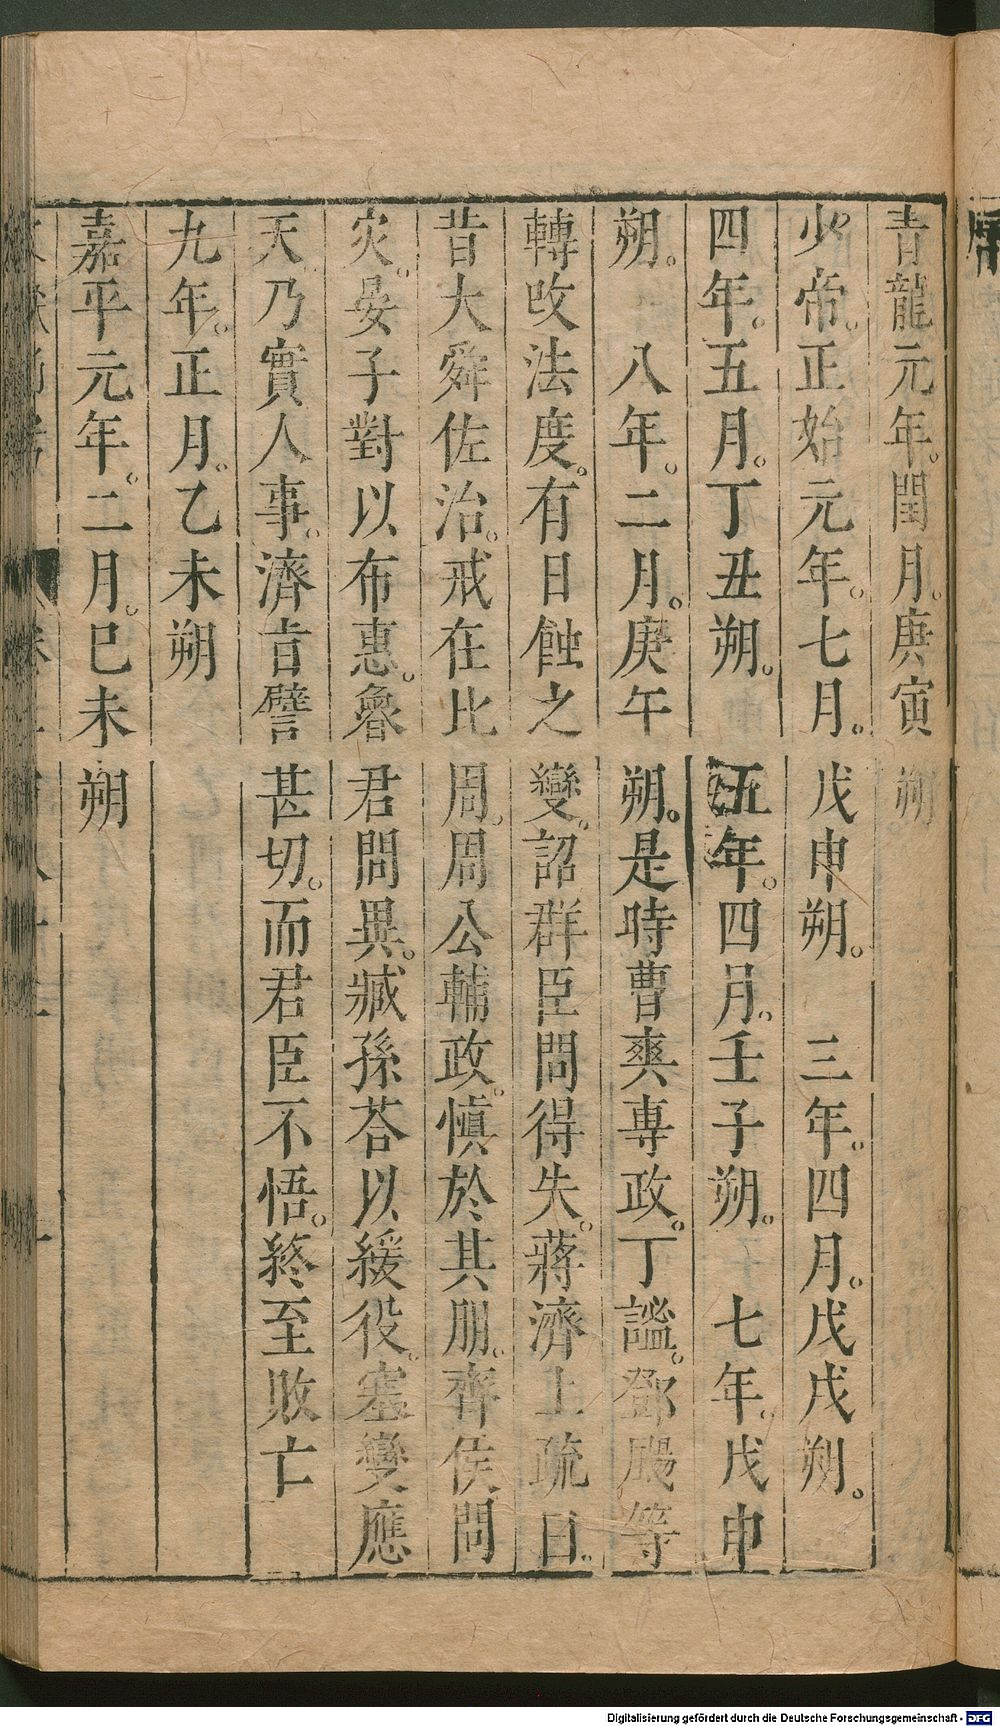 青龍元年。閏月。庚寅朔
少帝。正始元年。七月。戊申朔。　三年。四月。戊戌朔。
四年。五月。丁丑朔。　五年。四月。壬子朔。　七年。戊申
朔。　八年。二月。庚午朔。是時曹爽專政。丁謐。鄧颺等
轉改法度。有日蝕之變。詔群臣問得失。蔣濟上疏曰。
昔大舜佐治。戒在比周。周公輔政。慎於其朋。齊侯問
災。晏子對以布惠。魯君問異。臧孫荅以緩役。塞變應
天。乃實人事。濟旨譬甚切。而君臣不悟。終至敗亡
九年。正月。乙未朔
嘉平元年。二月。巳未朔
Digitalisierung gefördert durch die Deutsche Forschungsgemeinschaft - DFG